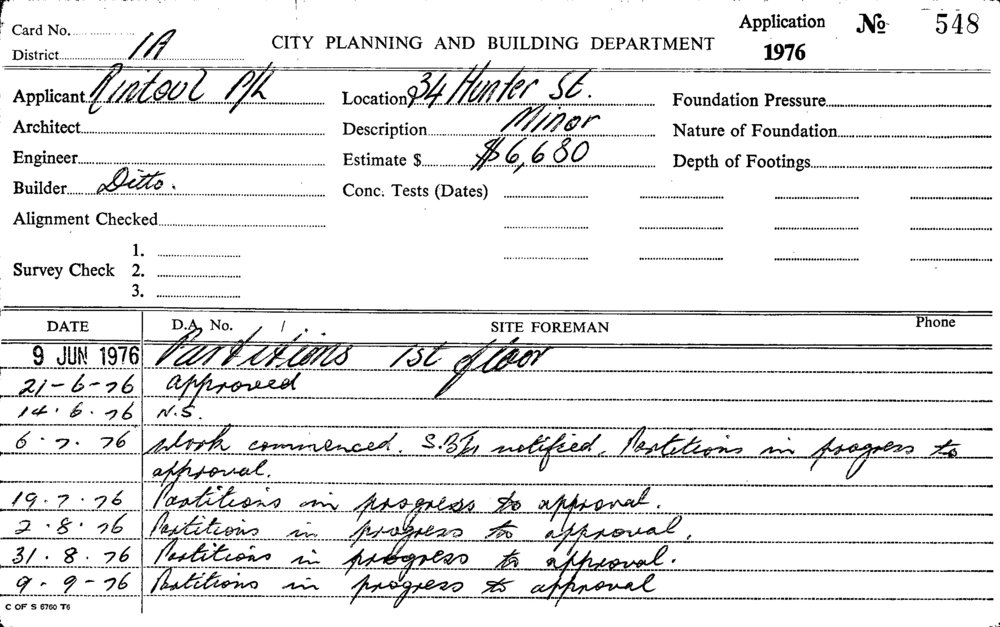 Card No. Application No 548
District 1A CITY PLANNING AND BUILDING DEPARTMENT 1976
Applicant Rintoul P/L Location 34 Hunter St. Foundation Pressure
Architect Description Minor Nature of Foundation
Engineer Estimate $ $6,680 Depth of Footings
Builder Ditto. Conc. Tests (Dates)
Alignment Checked
1.
Survey Check 2.
3.
DATE D.A. No. / SITE FOREMAN Phone
9 JUN 1976 Partitions 1st floor
21-6-76 approved
14.6.76 N.S.
6.7.76 Work commenced. notified. Partitions in progress to
approval.
19.7.76 Partitions in progress to approval.
2.8.76 Partitions in progress to approval.
31.8.76 Partitions in progress to approval.
9.9-76 Partitions in progress to approval
C OF S 6760 T6